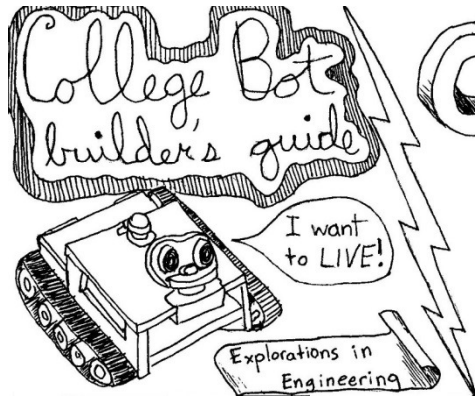 College Bot
builder's guide
I want
to LIVE!
Explorations in
Engineering